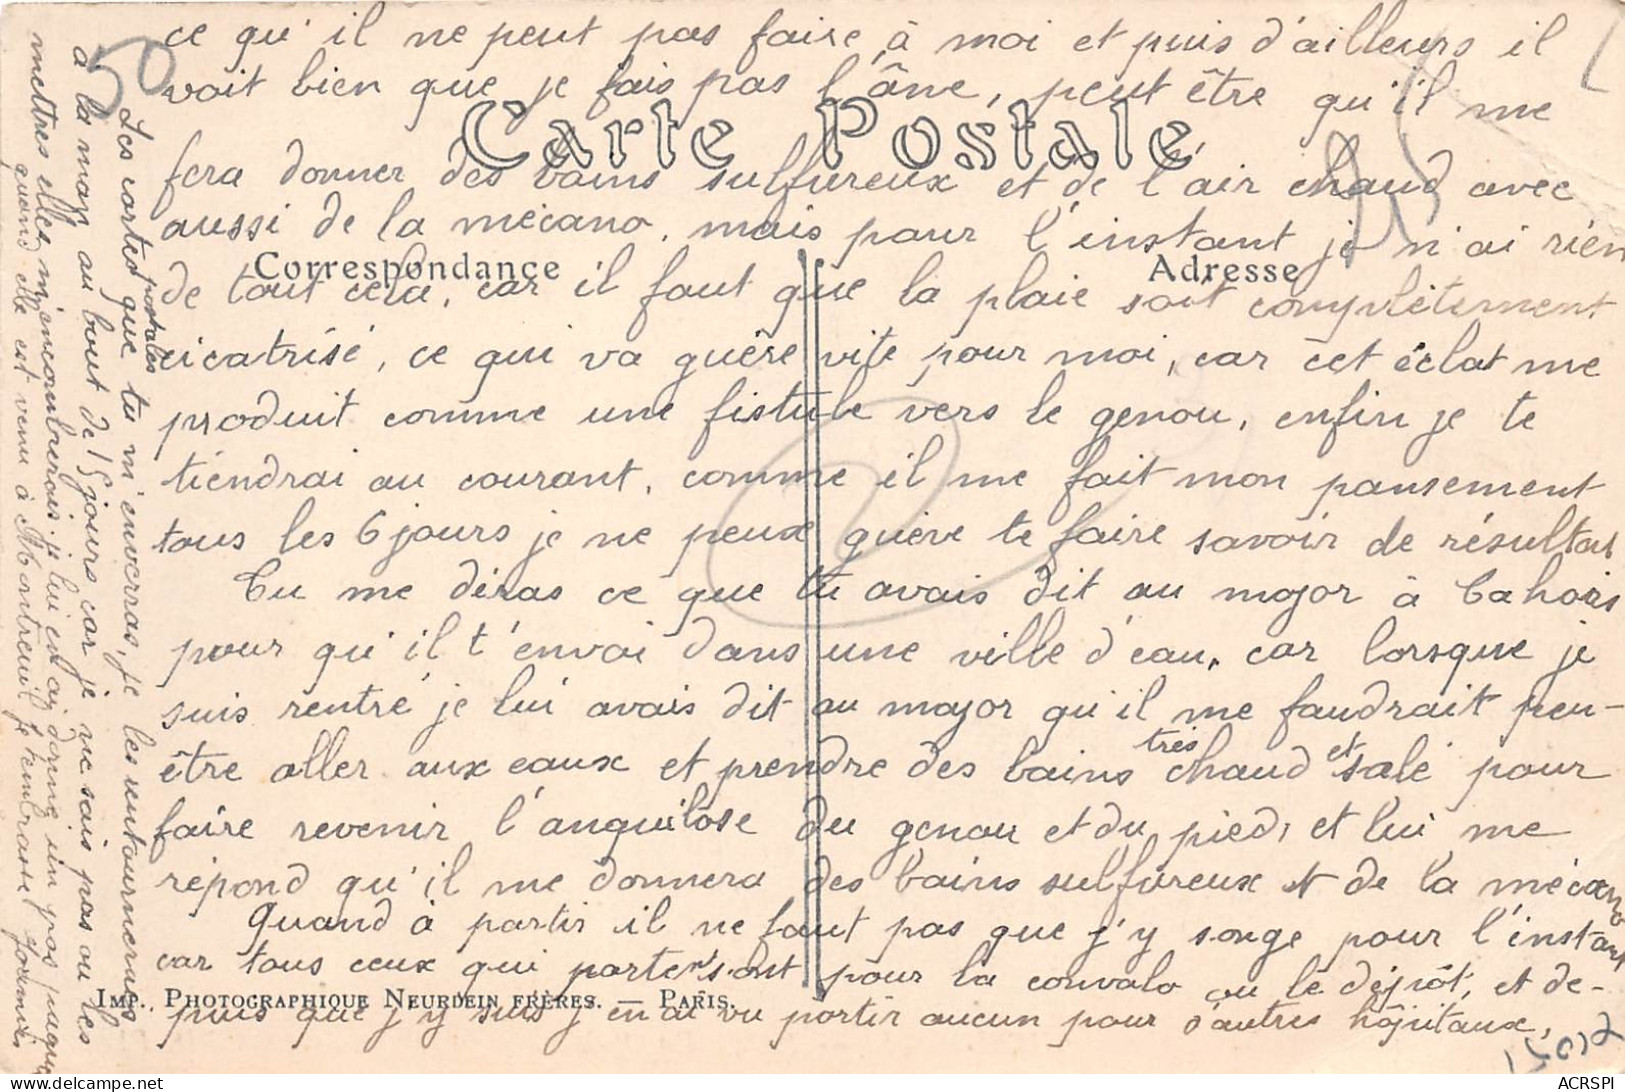 ce qu'il ne peut pas faire à moi et puis d'ailleurs il
voit bien que je fais pas l'âne, peut être qu'il me
Carte Postale
fera donner des bains sulfureux et de l'air chaud avec
aussi de la mécano, mais pour l'instant je n'ai rien
Correspondance
Adresse
de tout cela, car il faut que la plaie soit complètement
cicatrisé, ce qui va guère vite pour moi, car cet éclat me
produit comme une fistule vers le genou, enfin je te
tiendrai au courant, comme il me fait mon pansement
tous les 6 jours je ne peux guère te faire savoir de résultat
Tu me diras ce que tu avais dit au major à Cahors
pour qu'il t'envoi dans une ville d'eau, car lorsque je
suis rentré je lui avais dit au major qu'il me faudrait peu-
être aller aux eaux et prendre des bains très chaud et salé pour
faire revenir l'anquilose du genou et du pied, et lui me
répond qu'il me donnera des bains sulfureux et de la mécano
Quand à partir il ne faut pas que j'y songe pour l'instant
car tous ceux qui partent sont pour la convalo ou le dépôt, et de-
puis que j'y suis j'en ai vu partir aucun pour d'autres hôpitaux,
Imp. Photographique Neurdein frères. — Paris.
Les cartes postales que tu m'enverras, je les
à la mag au bout de 15 jours car je ne sais pas ou les
mettres elles m'encombrerais. je lui en ai donné un
quand elle est venu à Montreuil Je t'embrasse
50
15017